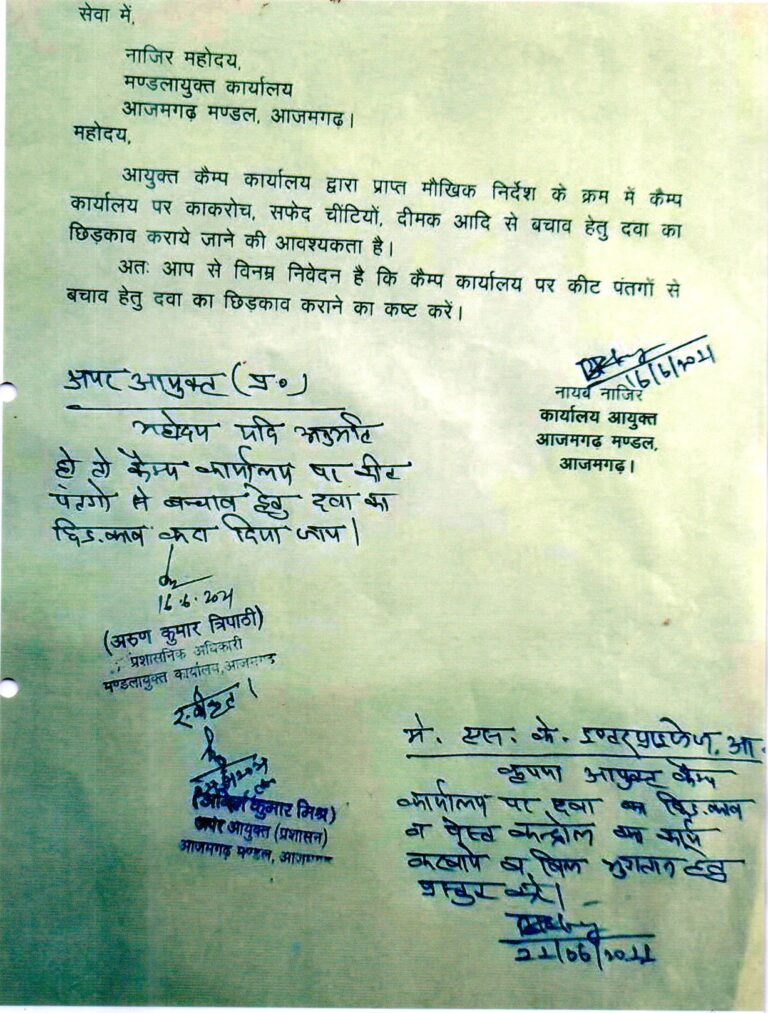 सेवा में,
नाजिर महोदय,
मण्डलायुक्त कार्यालय
आजमगढ़ मण्डल, आजमगढ़।
महोदय,
आयुक्त कैम्प कार्यालय द्वारा प्राप्त मौखिक निर्देश के क्रम में कैम्प
कार्यालय पर काकरोच, सफेद चींटियों, दीमक आदि से बचाव हेतु दवा का
छिड़काव कराये जाने की आवश्यकता है।
अतः आप से विनम्र निवेदन है कि कैम्प कार्यालय पर कीट पंतगों से
बचाव हेतु दवा का छिड़काव कराने का कष्ट करें।
16/6/2021
नायब नाजिर
कार्यालय आयुक्त
आजमगढ़ मण्डल,
आजमगढ़।
अपर आयुक्त (प्र०)
महोदय यदि अनुमति
हो तो कैम्प कार्यालय पर कीट
पंतगो से बचाव हेतु दवा का
छिड़काव करा दिया जाय।
16.6.2021
(अरुण कुमार त्रिपाठी)
प्रशासनिक अधिकारी
मण्डलायुक्त कार्यालय, आजमगढ़
स्वीकृत।
कुमार मिश्र)
अपर आयुक्त (प्रशासन)
आजमगढ़ मण्डल, आजमगढ़
मे. एस. के. इण्टरप्राइजेज, आ.
कृपया आयुक्त कैम्प
कार्यालय पर दवा का छिड़काव
व पेस्ट कन्ट्रोल का कार्य
करवाये व बिल भुगतान हेतु
प्रस्तुत करें।
21/06/2021